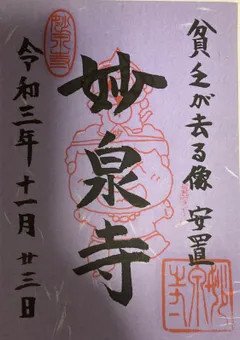 貧乏が去る像 安置
妙泉寺
令和三年 十一月 廿三日
妙泉寺
妙泉寺